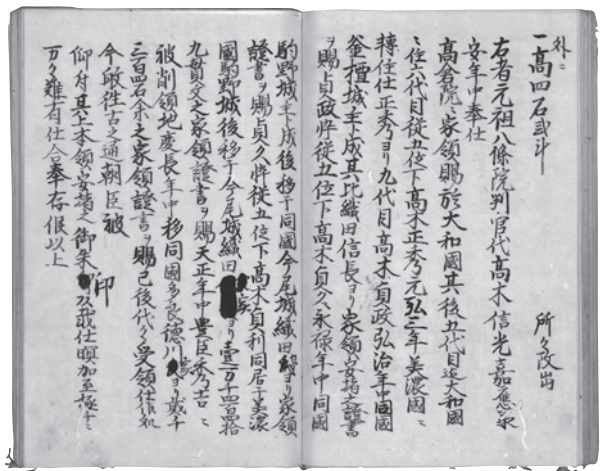 外ニ
一高四石弐斗
所々改出
右者元祖八條院判官代高木信光嘉應承
安年中奉仕
高倉院ニ家領賜於大和國其後五代目迄大和國
ニ住六代目従五位下高木正秀元弘三年美濃國ニ
轉住仕正秀ヨリ九代目高木貞政弘治年中同國
城主ト成其比織田信長ヨリ家領安堵之證書
ヲ賜貞政忰従五位下高木貞久永禄年中同國
駒野城主ト成後移于同國今尾城織田ヨリ家領
證書ヲ賜貞久忰従五位下高木貞利同居于美濃
國駒野城後移于今尾城織田ヨリ壹万千四百拾
九貫文之家領證書ヲ賜天正年中豊臣秀吉ニ
被削領地慶長年中移同國多良徳川ヨリ弐千
三百四石余之家領證書ヲ賜已後代々受領仕
今般往古之通朝臣被
仰付其上本領安堵之御朱印戴仕瞑加至極ニ
万々難有仕合奉存候以上